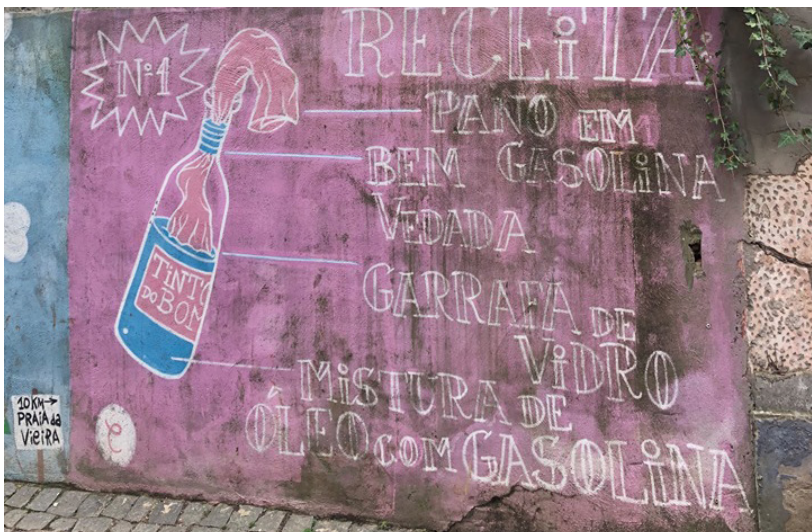 Nº1
RECEITA
PANO EM
GASOLINA
BEM
VEDADA
GARRAFA DE
VIDRO
MISTURA DE
ÓLEO COM GASOLINA
TINTO
DO BOM
10KM→
PRAIA da
VIEIRA